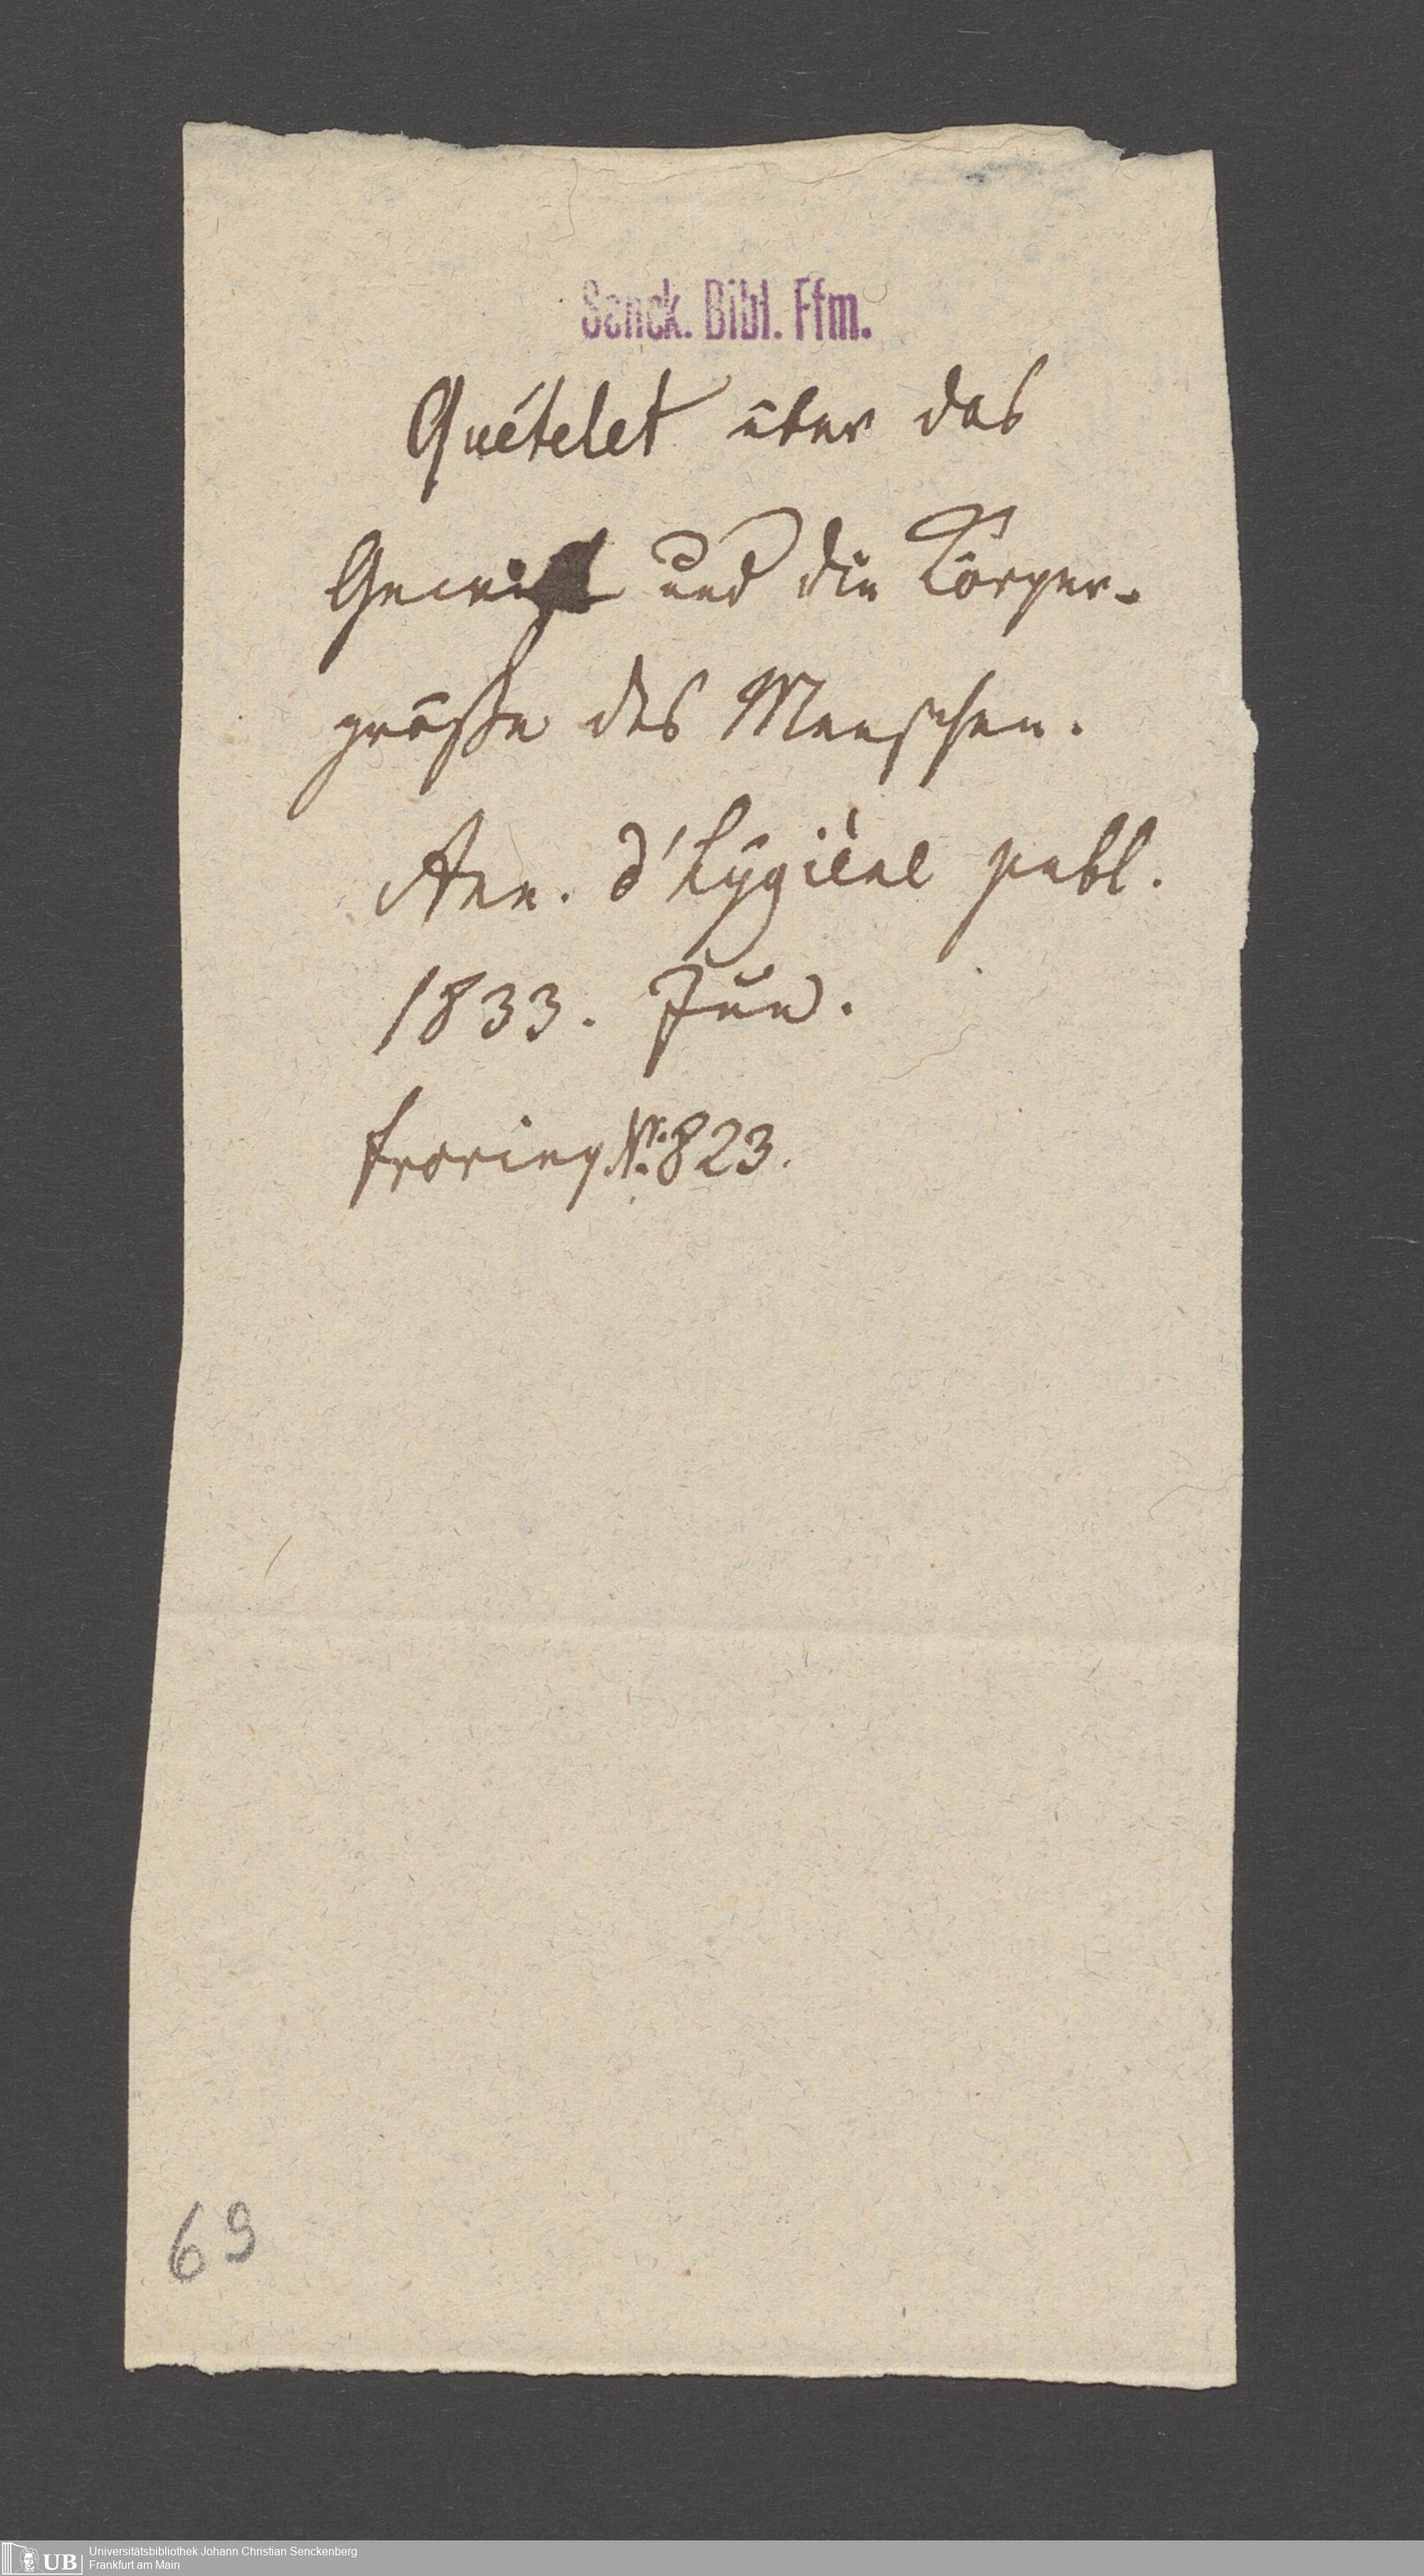 Senck. Bibl. Ffm.
Quételet über das
Gewicht und die Körper-
größe des Menschen.
Ann. d'hygiène publ.
1833. Jun.
Froriep No. 823.
69
UB
Universitätsbibliothek Johann Christian Senckenberg
Frankfurt am Main